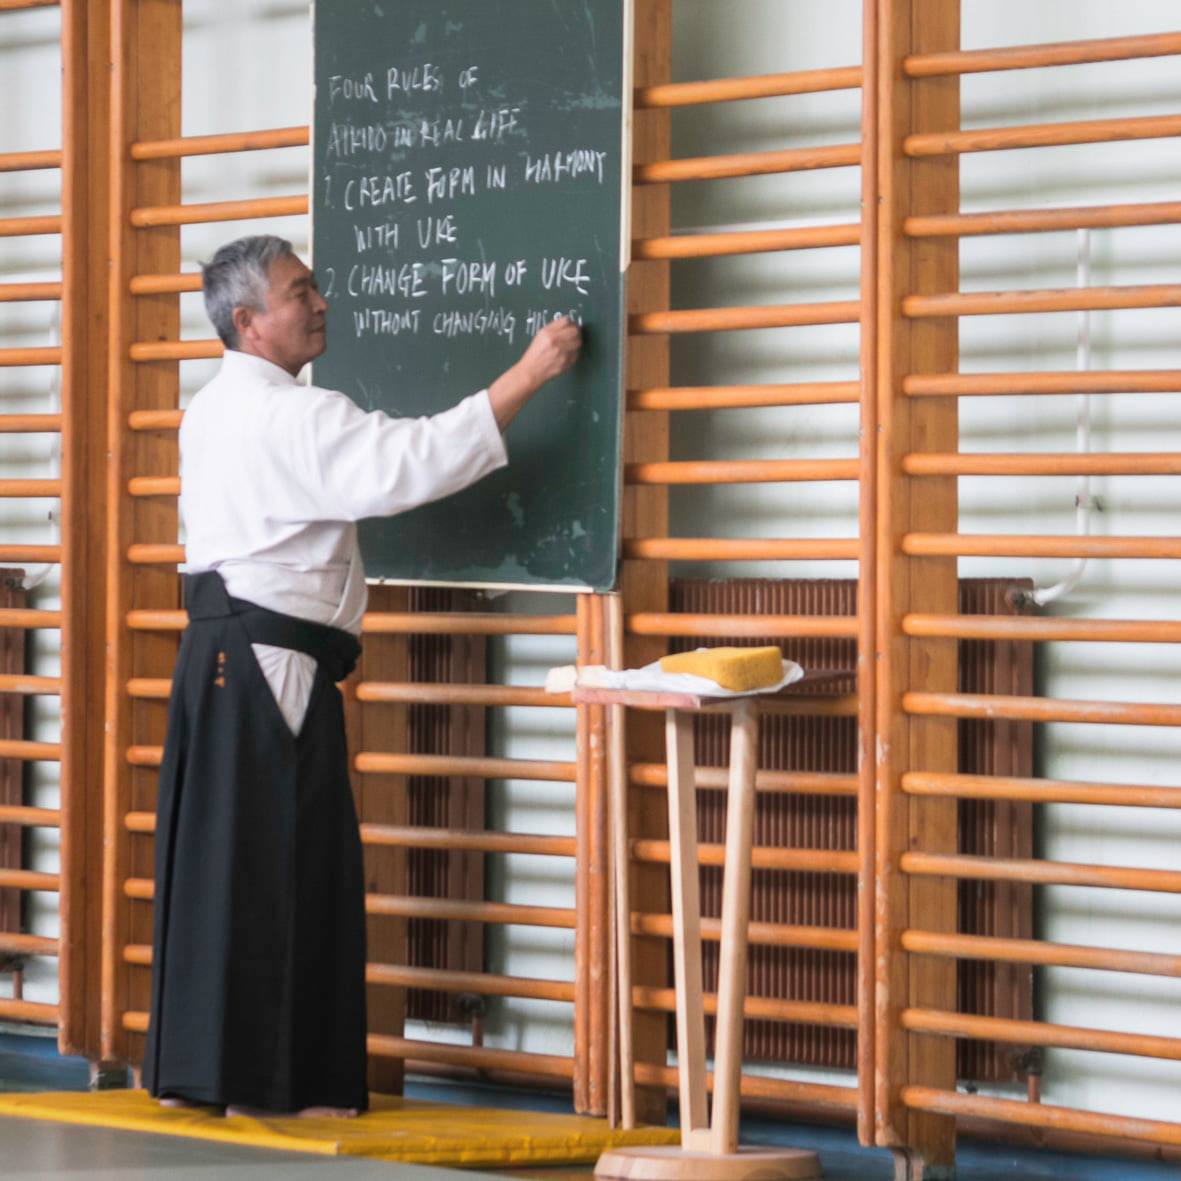 FOUR RULES OF
AIKIDO IN REAL LIFE
1. CREATE FORM IN HARMONY
WITH UKE
2. CHANGE FORM OF UKE
WITHOUT CHANGING HIS